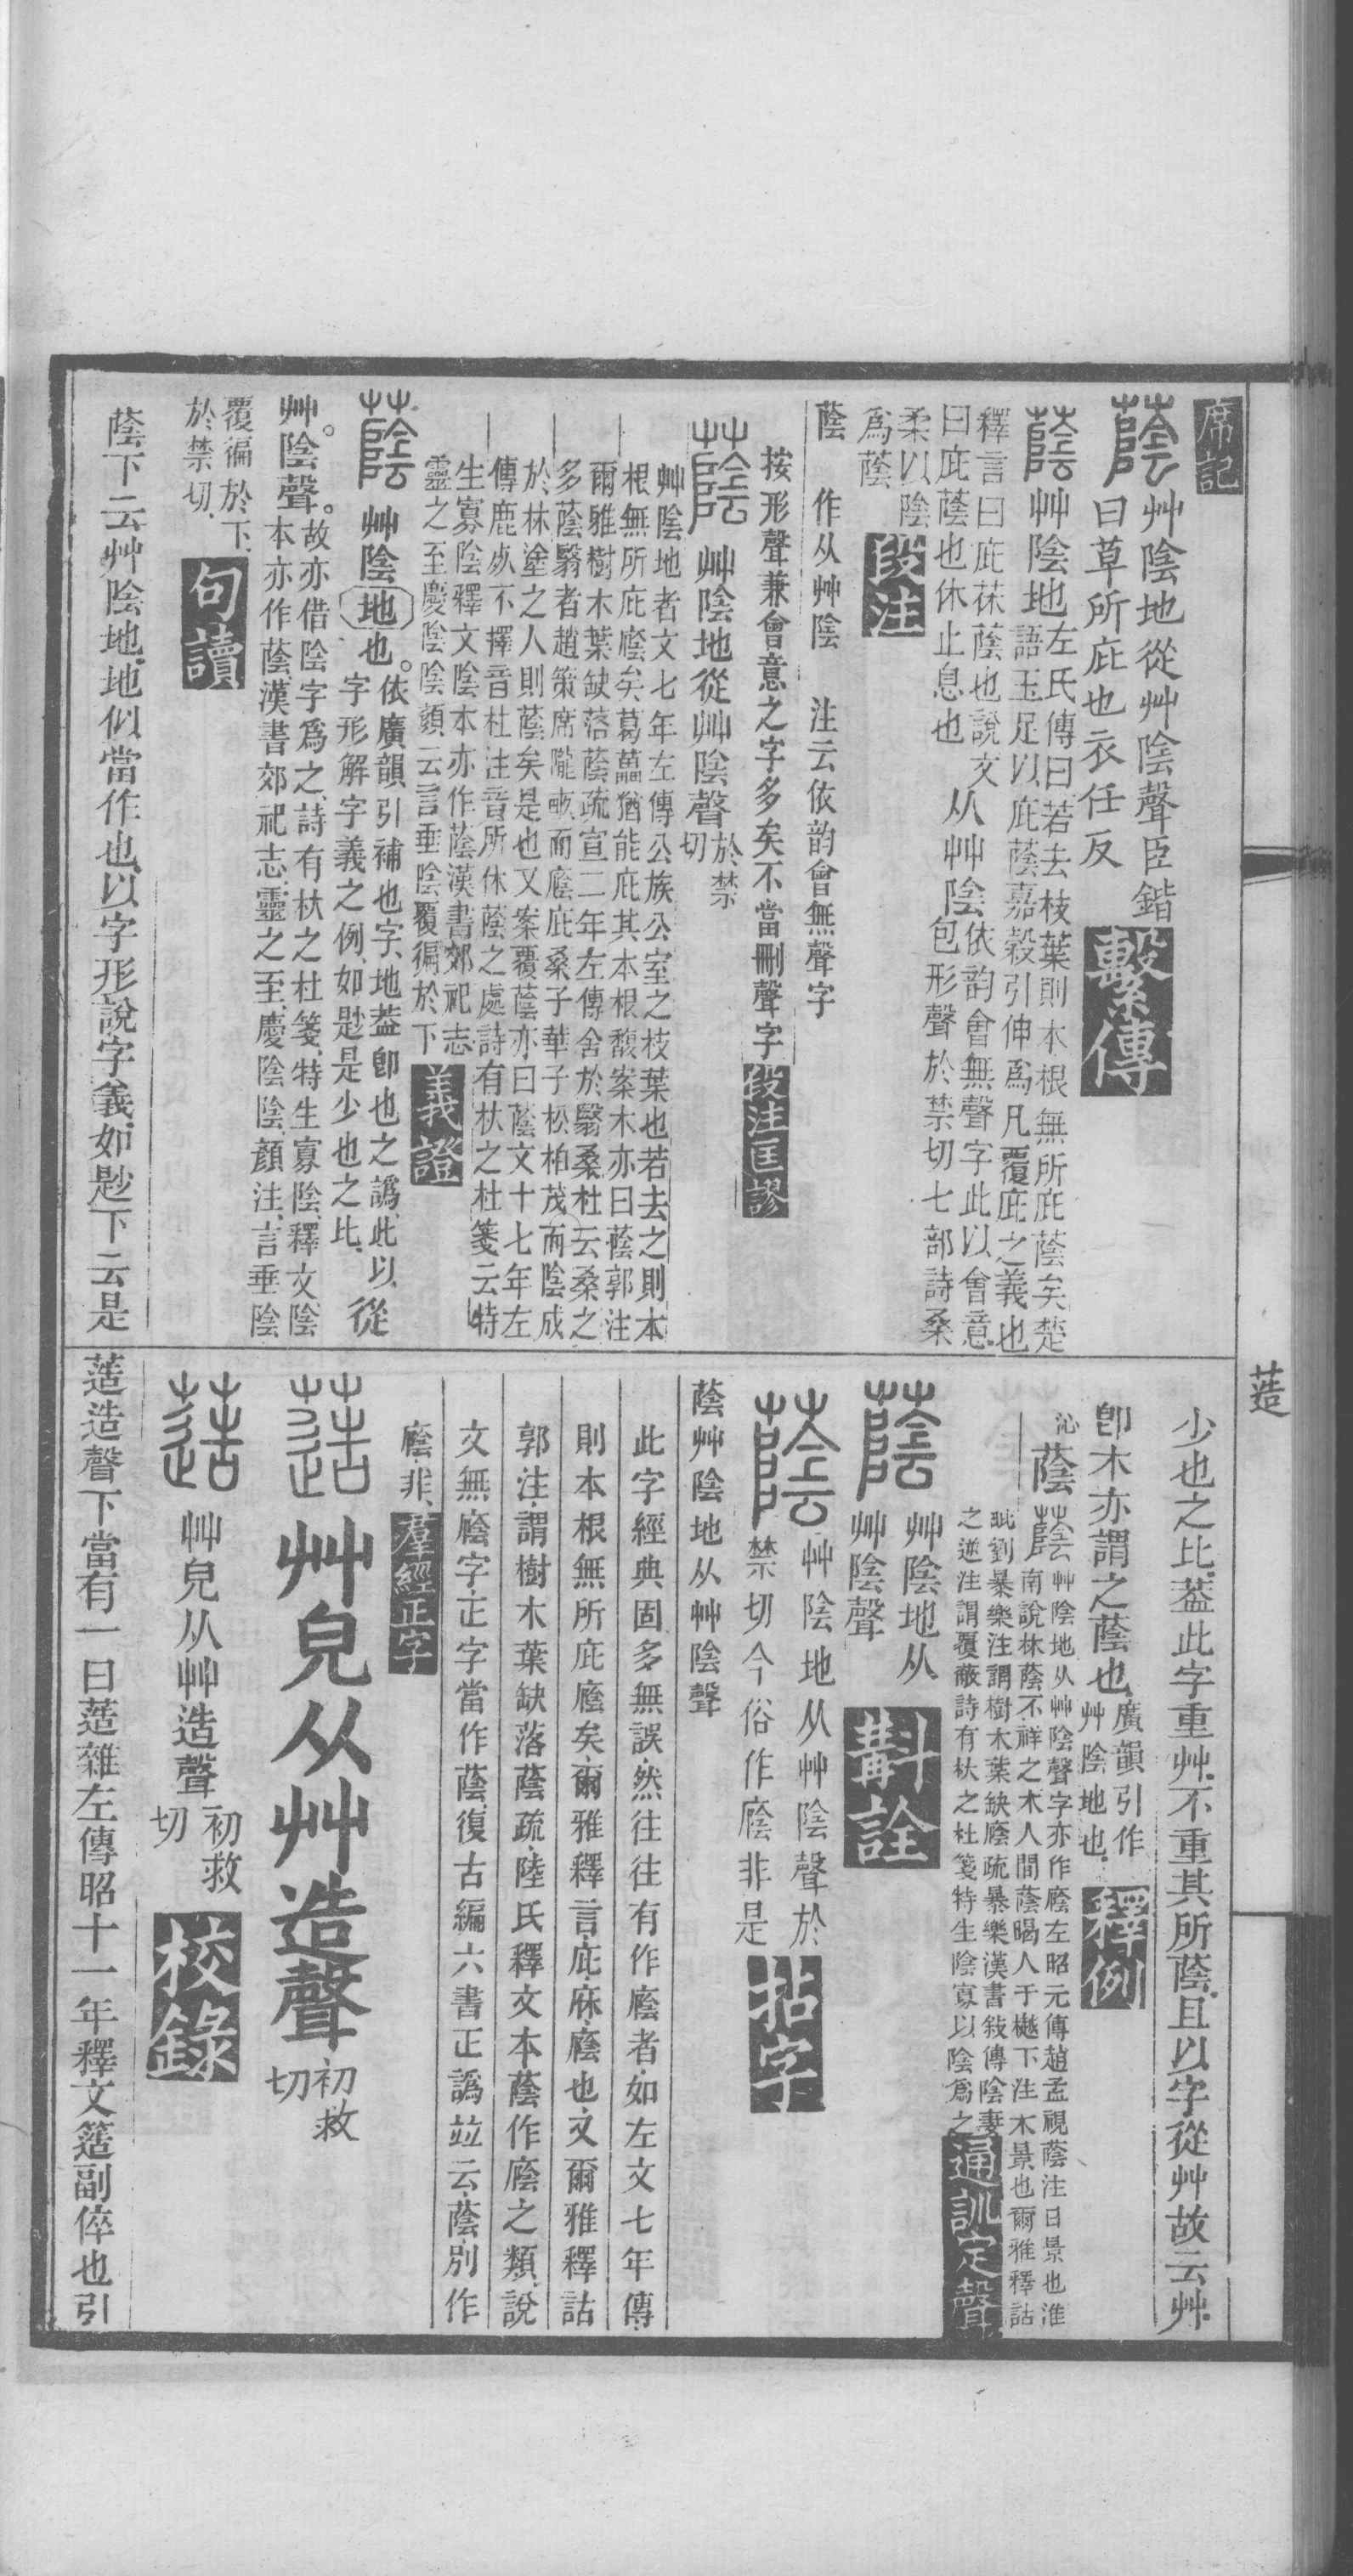 席記
蔭艸陰地從艸陰聲臣鍇
曰草所庇也衣任反
繫傳
蔭艸陰地
左氏傳曰若去枝葉則本根無所庇蔭矣楚
語玉足以庇蔭嘉穀引伸爲凡覆庇之義也
釋言曰庇茠蔭也說文
曰庇蔭也休止息也
从艸陰
依韵會無聲字此以會意
包形聲於禁切七部詩桑
柔以陰
爲蔭
段注
蔭 作从艸陰 注云依韵會無聲字
按形聲兼會意之字多矣不當刪聲字
段注匡謬
蔭艸陰地從艸陰聲
於禁
切
艸陰地者文七年左傳公族公室之枝葉也若去之則本
根無所庇廕矣葛藟猶能庇其本根馥案木亦曰蔭郭注
爾雅樹木葉缺落蔭疏宣二年左傳舍於翳桑杜云桑之
多蔭翳者趙策席隴畝而廕庇桑子華子松柏茂而陰成
於林塗之人則蔭矣是也又案覆蔭亦曰蔭文十七年左
傳鹿死不擇音杜注音所休蔭之處詩有杕之杜箋云特
生寡陰釋文陰本亦作蔭漢書郊祀志
靈之至慶陰陰顏云言垂陰覆徧於下
義證
蔭艸陰地也。
依廣韻引補也字、地葢卽也之譌、此以
字形解字義之例、如尟是少也之比、
從
艸。陰聲。
故亦借陰字爲之、詩有杕之杜箋、特生寡陰、釋文、陰
本亦作蔭、漢書郊祀志、靈之至、慶陰陰、顏注、言垂陰
覆徧於下、
於禁切、
句讀
蔭下云艸陰地、地似當作也、以字形說字義、如尟下云是
少也之比、葢此字重艸、不重其所蔭、且以字從艸故云艸、
卽木亦謂之蔭也、
廣韻引作
艸陰地也、
釋例
沁
蔭
蔭艸陰地从艸陰聲字亦作廕左昭元傳趙孟視蔭注日景也淮
南說林蔭不祥之木人間蔭暍人于樾下注木景也爾雅釋詁
毗劉暴樂注謂樹木葉缺廕疏暴樂漢書敍傳陰妻
之逆注謂覆蔽詩有杕之杜箋特生陰寡以陰爲之
通訓定聲
蔭
艸陰地从
艸陰聲
斠詮
蔭
艸陰地从艸陰聲於
禁切今俗作廕非是
拈字
蔭艸陰地从艸陰聲
此字經典固多無誤、然往往有作廕者、如左文七年傳、
則本根無所庇廕矣、爾雅釋言、庇庥、廕也、又爾雅釋詁
郭注、謂樹木葉缺落蔭疏、陸氏釋文本蔭作廕之類、說
文無廕字、正字當作蔭、復古編六書正譌竝云、蔭別作
廕、非、
羣經正字
莡艸皃从艸造聲
初救
切
莡艸皃从艸造聲
初救
切
校錄
莡造聲下當有一曰莡雜左傳昭十一年釋文簉副倅也引
莡